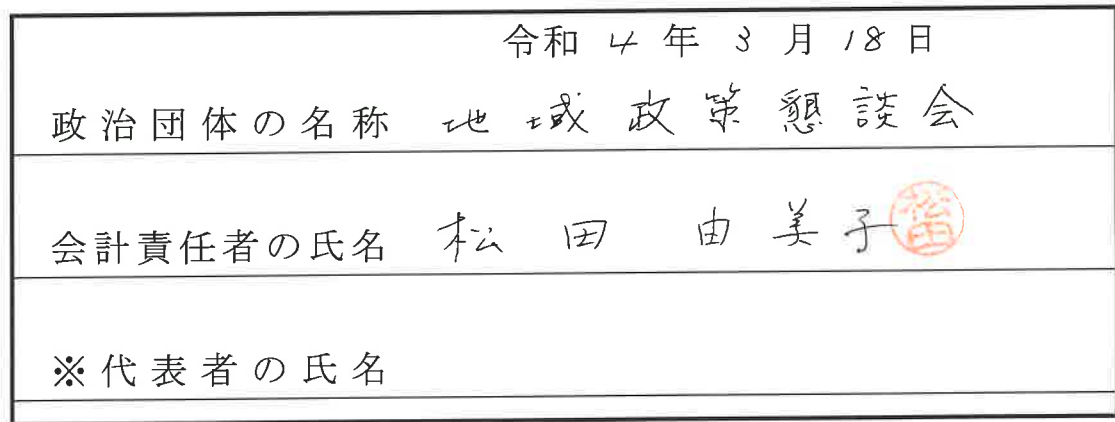 令和 4 年 3 月 18 日
政治団体の名称 地域政策懇談会
会計責任者の氏名 松田 由美子 松田
※代表者の氏名